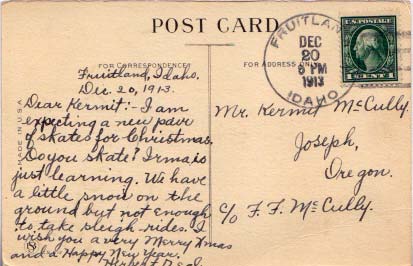 POST CARD
FOR CORRESPONDENCE
Fruitland, Idaho.
Dec. 20, 1913.
Dear Kermit:- I am
expecting a new pair
of skates for Christmas.
Do you skate? Irma is
just learning. We have
a little snow on the
ground but not enough
to take sleigh rides. I
wish you a very Merry Xmas
and a Happy New Year.
MADE IN U.S.A.
FOR ADDRESS ONLY
FRUITLAND
DEC
20
6 PM
1913
IDAHO
U.S. POSTAGE
1 CENT 1
Mr. Kermit McCully.
Joseph,
Oregon.
c/o F. F. McCully.